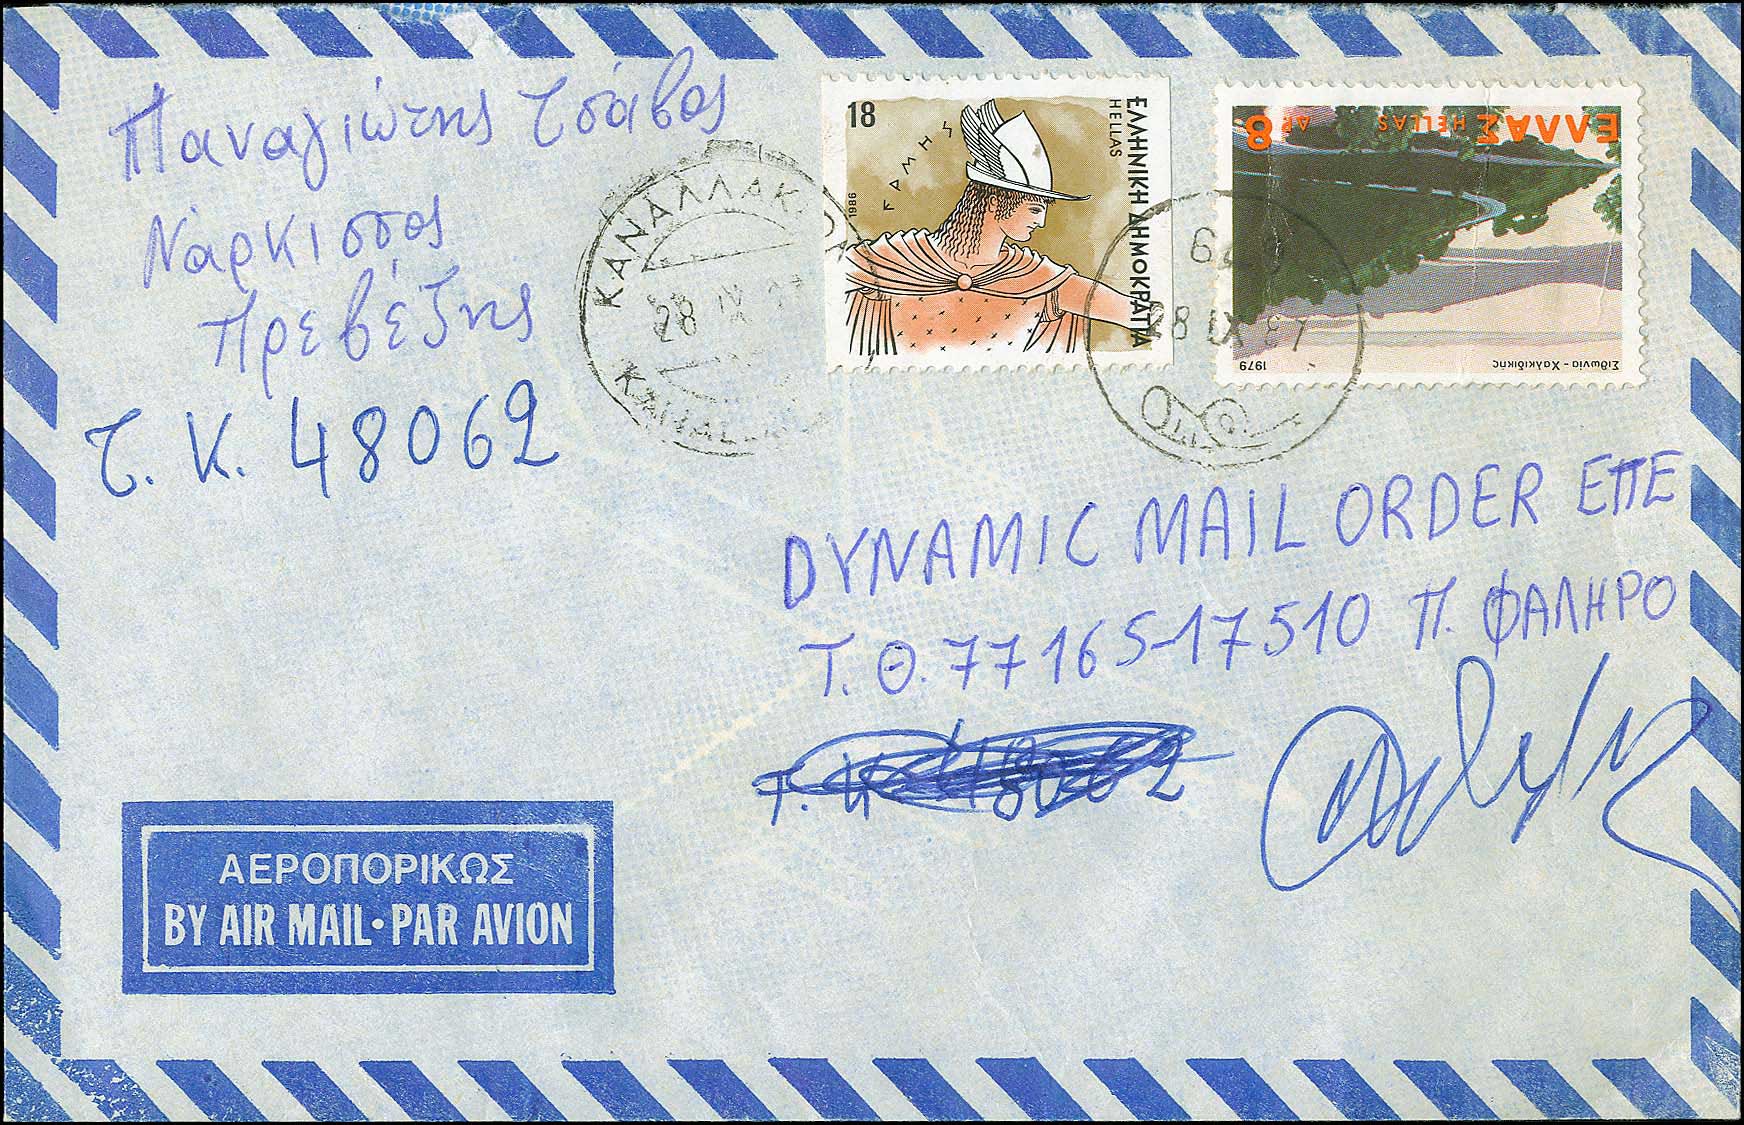 Παναγιώτης Τσάβος
Νάρκισσος
Πρεβέζης
Τ. Κ. 48062
18
ΕΡΜΗΣ
1986
ΕΛΛΗΝΙΚΗ ΔΗΜΟΚΡΑΤΙΑ
HELLAS
ΕΛΛΑΣ HELLAS ΔΡ 8
1979
Σιθωνία - Χαλκιδικής
ΚΑΝΑΛΛΑΚΙΟΝ
28 IX
28 IX 87
DYNAMIC MAIL ORDER ΕΠΕ
Τ.Θ. 77165-17510 Π. ΦΑΛΗΡΟ
ΑΕΡΟΠΟΡΙΚΩΣ
BY AIR MAIL • PAR AVION